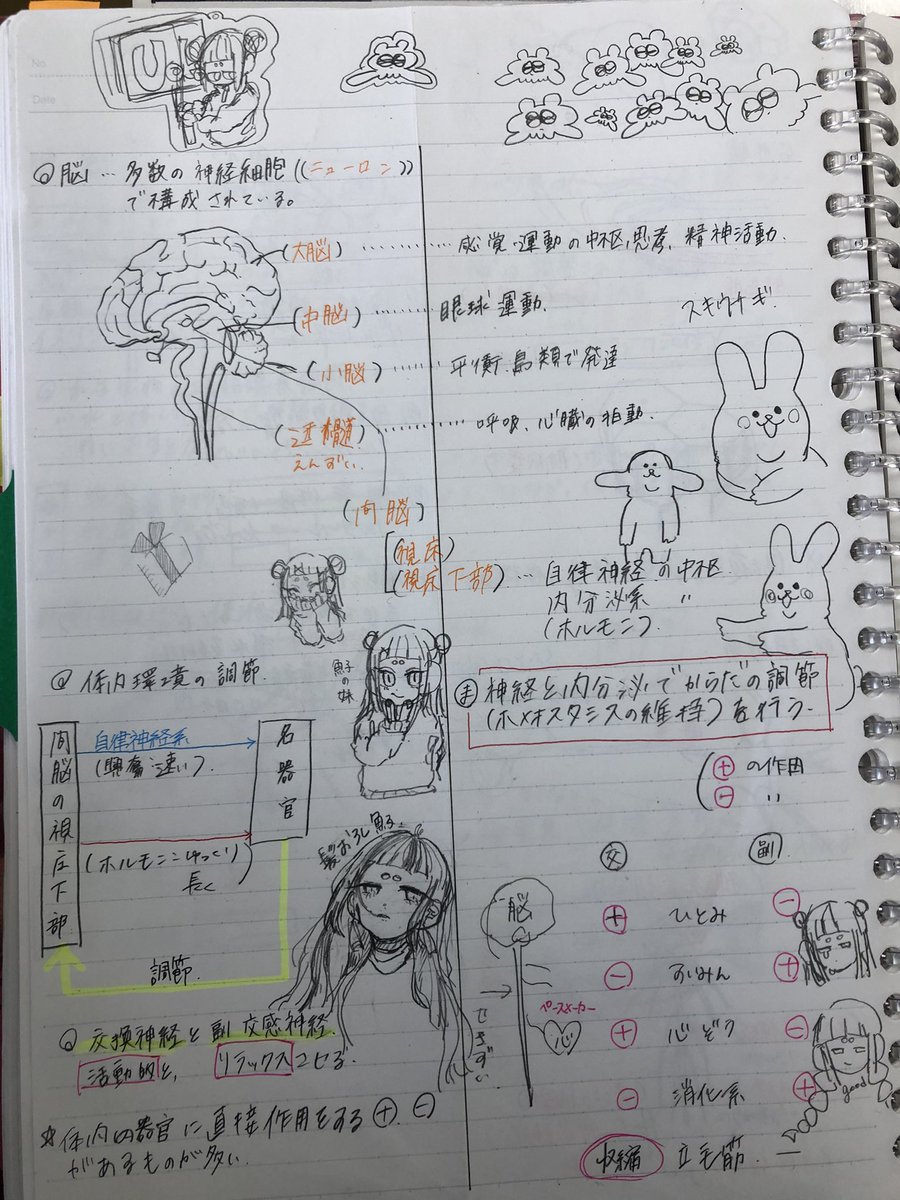 No.
Date
◎脳…多数の神経細胞((ニューロン))
で構成されている。
(大脳)………感覚・運動の中枢,思考,精神活動.
(中脳)………眼球運動.
(小脳)………平衡.鳥類で発達
(延髄)………呼吸、心臓の拍動.
えんずい
(間脳)
(視床)
(視床下部)…自律神経の中枢
内分泌系 〃
(ホルモン).
スキウサギ
◎体内環境の調節.
間脳の視床下部
自律神経系
(興奮:速い).
各器官
(ホルモン:ゆっくり)
長く
調節.
魚子の妹
髪おろし魚子
ま 神経と内分泌でからだの調節
(ホメオスタシスの維持)を行う.
⊕の作用
⊖ 〃
◎交換神経と副交感神経
活動的と,リラックスさせる.
☆体内の器官に直接作用をする⊕.⊖
があるものが多い.
脳
ペースメーカー
心
せきずい
交 副
⊕ ひとみ ⊖
⊖ すいみん ⊕
⊕ 心ぞう ⊖
⊖ 消化系 ⊕
収縮 立毛筋.
good